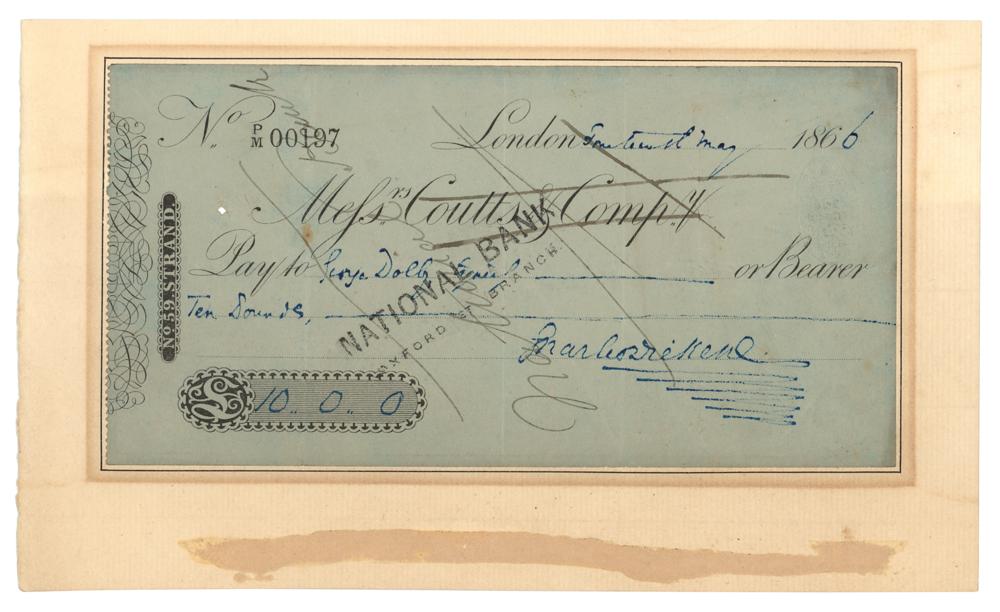 No. P/M 00197
London Fourteenth May 1866
Messrs. Coutts & Compy.
Pay to George Dolby Esquire or Bearer
Ten Pounds,
Charles Dickens
£ 10 .. 0 .. 0
No. 59, STRAND.
NATIONAL BANK
OXFORD ST BRANCH.